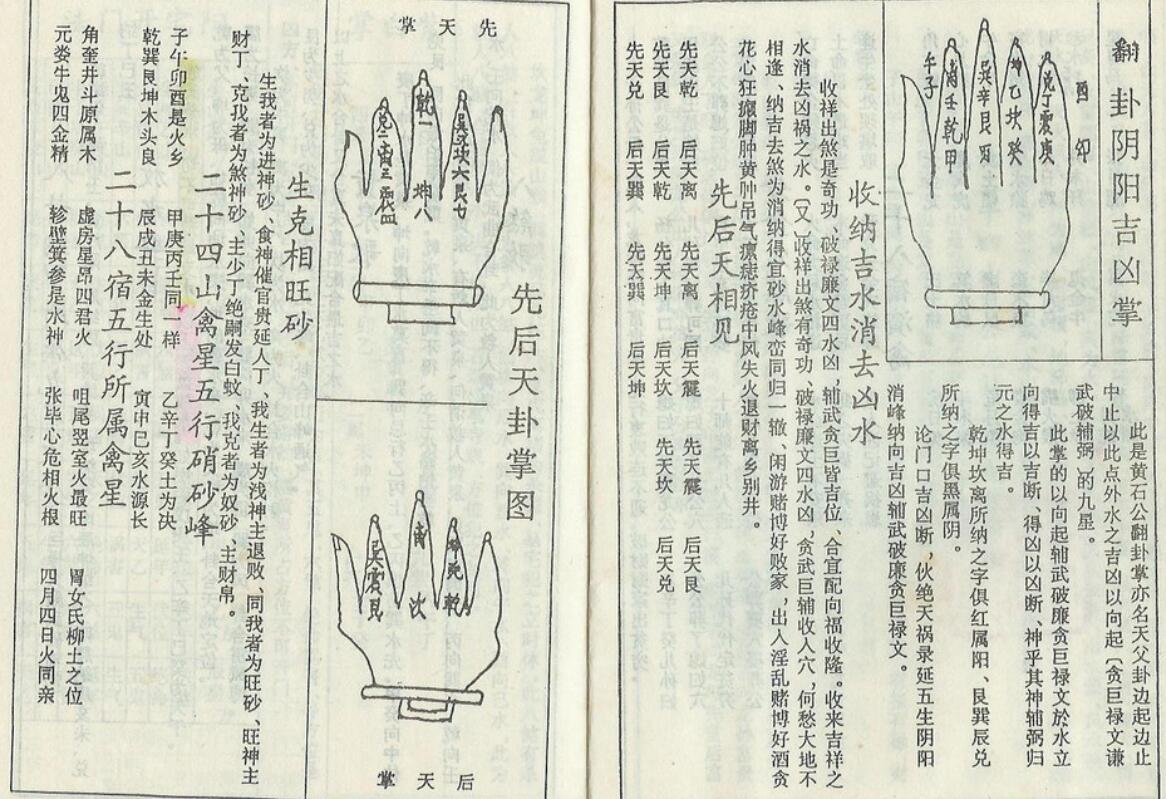 翻卦阴阳吉凶掌
酉 卯
兑丁震庚
坤乙坎癸
巽辛艮丙
离壬乾甲
午子
此是黄石公翻卦掌亦名天父卦边起边止
中止以此点外水之吉凶以向起〔贪巨禄文谦
武破辅弼〕的九星。
此掌的以向起辅武破廉贪巨禄文於水立
向得吉以吉断、得凶以凶断、神乎其神辅弼归
元之水得吉。
乾坤坎离所纳之字俱红属阳、艮巽辰兑
所纳之字俱黑属阴。
论门口吉凶断，伙绝天祸录延五生阴阳
消峰纳向吉凶辅武破廉贪巨禄文。
收纳吉水消去凶水
收祥出煞是奇功、破禄廉文四水凶，辅武贪巨皆吉位、合宜配向福收隆。收来吉祥之
水消去凶祸之水。〔又〕收祥出煞有奇功、破禄廉文四水凶，贪武巨辅收人穴，何愁大地不
相逢、纳吉去煞为消纳得宜砂水峰峦同归一辙、闲游赌博好败家，出入淫乱赌博好酒贪
花心狂癫脚肿黄肿吊气瘰痣疥疮中风失火退财离乡别井。
先后天相见
先天乾 后天离 先天离 后天震 先天震 后天艮
先天艮 后天乾 先天坤 后天坎 先天坎 后天兑
先天兑 后天巽 先天巽 后天坤
先后天卦掌图
先天掌
乾一
兑二
离三
坤八
后天掌
离
坎
乾
巽震艮
生克相旺砂
生我者为进神砂、食神催官贵延人丁、我生者为浅神主退败、同我者为旺砂、旺神主
财丁、克我者为煞神砂、主少丁绝嗣发白蚁、我克者为奴砂、主财帛。
二十四山禽星五行硝砂峰
子午卯酉是火乡 甲庚丙壬同一样 乙辛丁癸土为决
乾巽艮坤木头良 辰戌丑未金生处 寅申巳亥水源长
二十八宿五行所属禽星
角奎井斗原属木 虚房星昴四君火 咀尾翌室火最旺 胃女氏柳土之位
元娄牛鬼四金精 轸壁箕参是水神 张毕心危相火根 四月四日火同亲